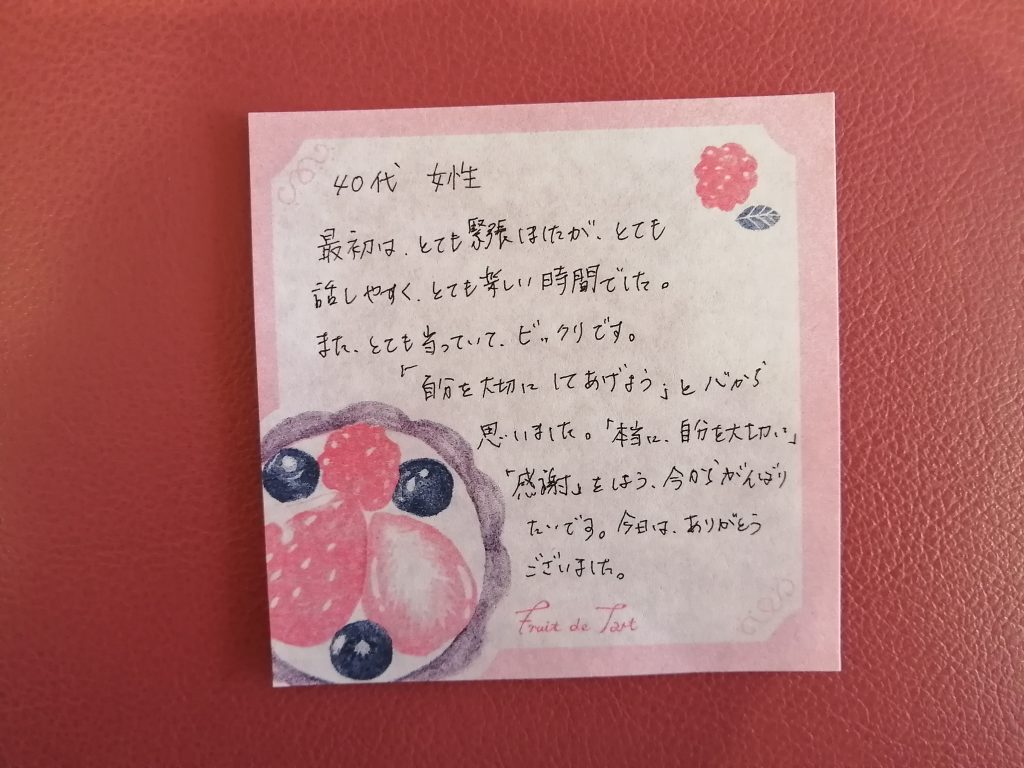 40代 女性
最初は、とても緊張ほしたが、とても
話しやすく、とても楽しい時間でした。
また、とても当っていて、ビックリです。
「自分を大切にしてあげよう」と心から
思いました。「本当に、自分を大切に」
「感謝」をほう、今からがんばり
たいです。今日は、ありがとう
ございました。
Fruit de Tart